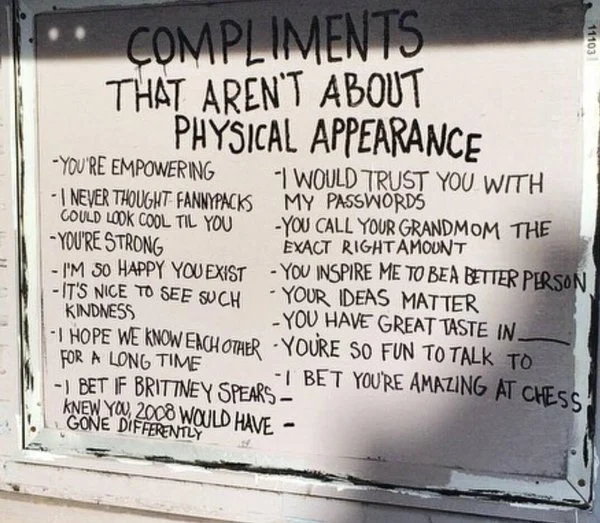 COMPLIMENTS
THAT AREN'T ABOUT
PHYSICAL APPEARANCE
-YOU'RE EMPOWERING
-I NEVER THOUGHT FANNYPACKS
COULD LOOK COOL TIL YOU
-YOU'RE STRONG
-I'M SO HAPPY YOU EXIST
-IT'S NICE TO SEE SUCH
KINDNESS
-I HOPE WE KNOW EACH OTHER
FOR A LONG TIME
-I BET IF BRITTNEY SPEARS
KNEW YOU, 2008 WOULD HAVE
GONE DIFFERENTLY
-I WOULD TRUST YOU WITH
MY PASSWORDS
-YOU CALL YOUR GRANDMOM THE
EXACT RIGHT AMOUNT
-YOU INSPIRE ME TO BE A BETTER PERSON
-YOUR IDEAS MATTER
-YOU HAVE GREAT TASTE IN ____
-YOU'RE SO FUN TO TALK TO
-I BET YOU'RE AMAZING AT CHESS
11103